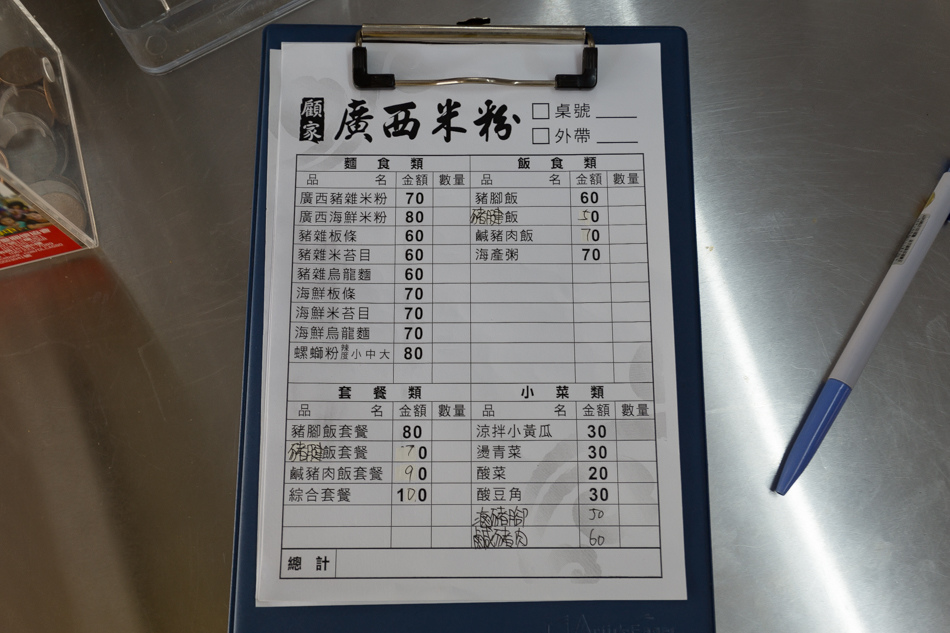 顧家 廣西米粉
桌號
外帶
麵食類
品名 金額 數量
廣西豬雜米粉 70
廣西海鮮米粉 80
豬雜板條 60
豬雜米苔目 60
豬雜烏龍麵 60
海鮮板條 70
海鮮米苔目 70
海鮮烏龍麵 70
螺螄粉 辣度 小 中 大 80
飯食類
品名 金額 數量
豬腳飯 60
豬腱飯 50
鹹豬肉飯 70
海產粥 70
套餐類
品名 金額 數量
豬腳飯套餐 80
豬腱飯套餐 70
鹹豬肉飯套餐 90
綜合套餐 100
小菜類
品名 金額 數量
涼拌小黃瓜 30
燙青菜 30
酸菜 20
酸豆角 30
滷豬腳 50
鹹豬肉 60
總計